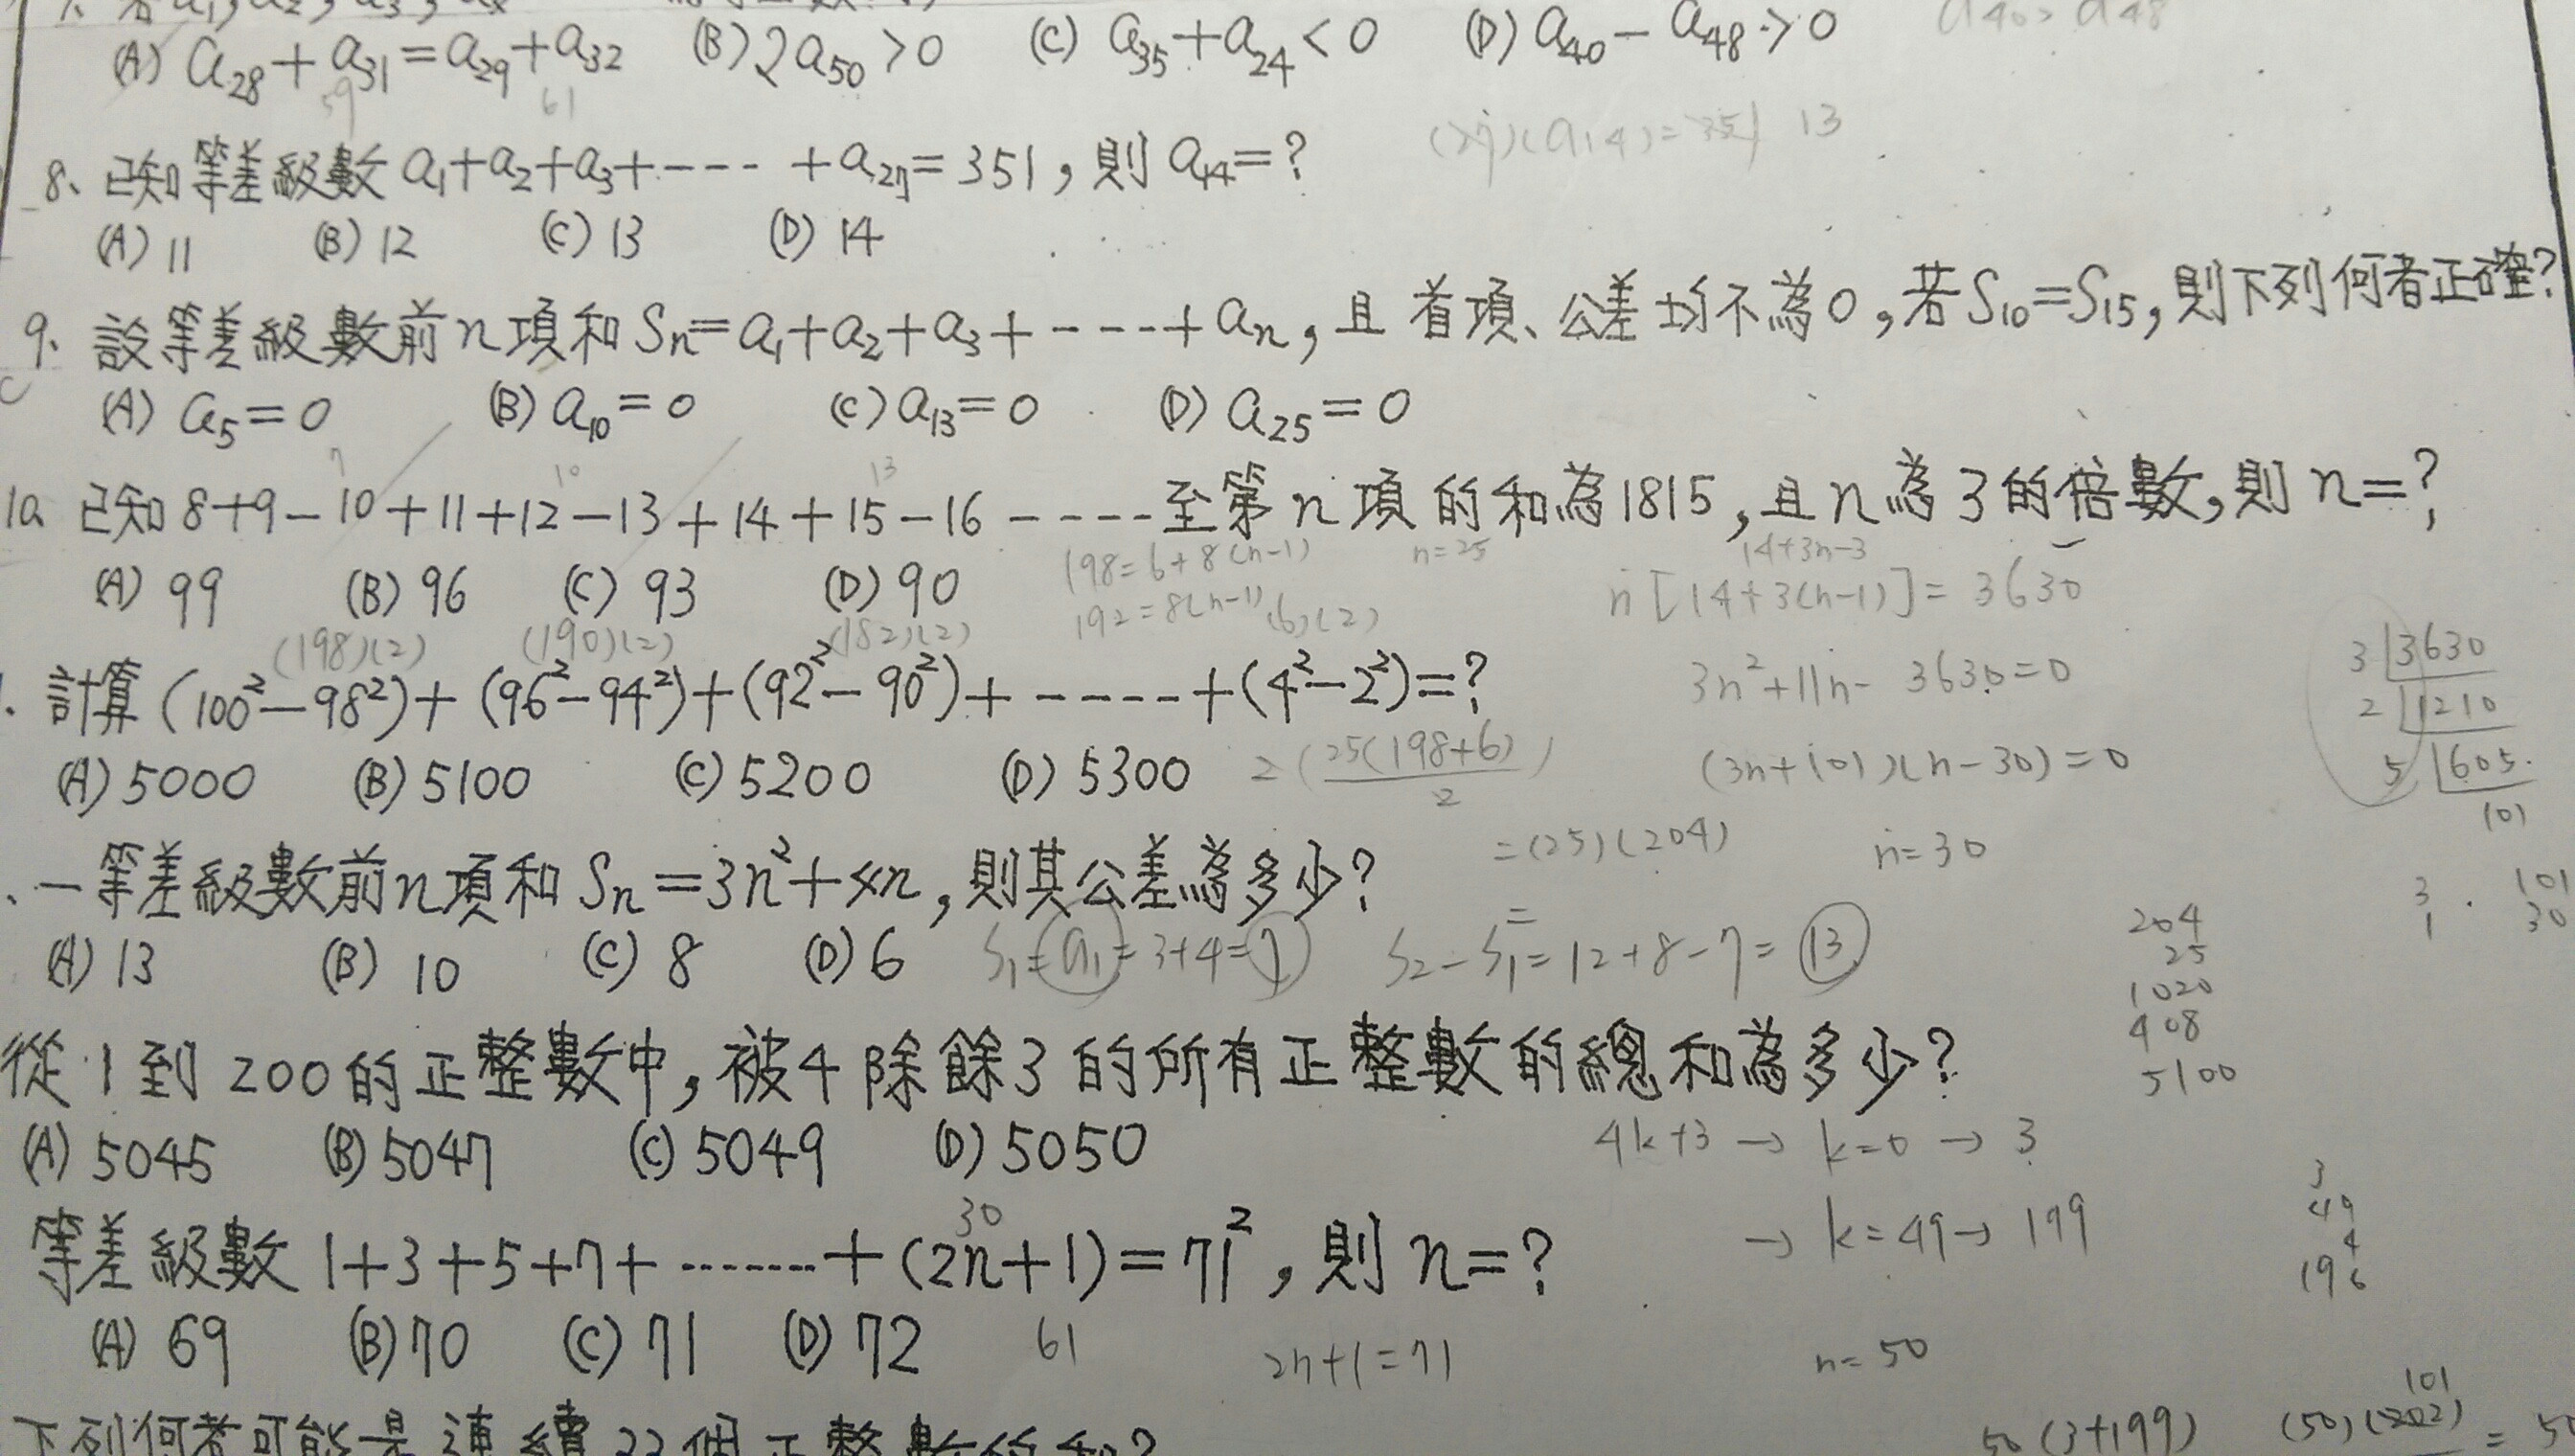 (A) a₂₈+a₃₁=a₂₉+a₃₂ (B) 2a₅₀>0 (C) a₃₅+a₂₄<0 (D) a₄₀-a₄₈>0 a₄₀>a₄₈
59 61
8、已知等差級數 a₁+a₂+a₃+---- +a₂₇=351,則 a₁₄=? (27)(a₁₄)=351 13
(A) 11 (B) 12 (C) 13 (D) 14
9、設等差級數前n項和 Sₙ=a₁+a₂+a₃+----+aₙ,且首項、公差均不為0,若S₁₀=S₁₅,則下列何者正確?
C
(A) a₅=0 (B) a₁₀=0 (C) a₁₃=0 (D) a₂₅=0
7 10 13
10、已知 8+9-10+11+12-13+14+15-16 ----至第n項的和為1815,且n為3的倍數,則 n=?
(A) 99 (B) 96 (C) 93 (D) 90
198=6+8(n-1) n=25 14+3n-3
192=8(n-1) n[14+3(n-1)]=3630
(198)(2) (190)(2) (182)(2) (6)(2)
計算 (100²-98²)+(96²-94²)+(92²-90²)+-----+(4²-2²)=?
3n²+11n-3630=0
3 3630
2 1210
5 605
101
(A) 5000 (B) 5100 (C) 5200 (D) 5300 2(25(198+6)/2) (3n+101)(n-30)=0
=(25)(204) n=30
、一等差級數前n項和 Sₙ=3n²+4n,則其公差為多少?
3 101
1 30
(A) 13 (B) 10 (C) 8 (D) 6 S₁=a₁=3+4=7 S₂-S₁=12+8-7=13
204
25
1020
408
5100
從1到200的正整數中,被4除餘3的所有正整數的總和為多少?
(A) 5045 (B) 5047 (C) 5049 (D) 5050 4k+3→k=0→3
→k=49→199
3
49
4
196
30
等差級數 1+3+5+7+-------+(2n+1)=71²,則 n=?
(A) 69 (B) 70 (C) 71 (D) 72 61 2n+1=71 n=50
下列何者可能是連續23個正整數的和?
101
50(3+199) (50)(202)